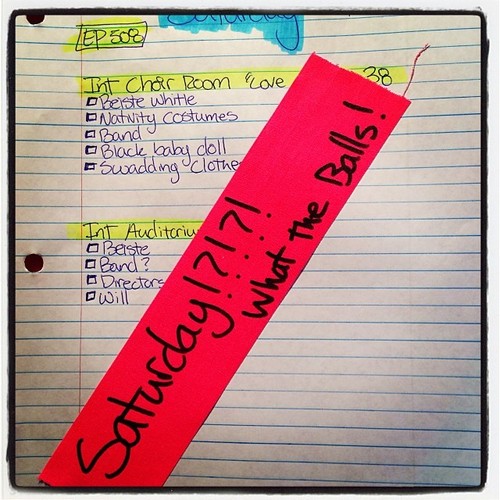 Saturday
EP 508
Int Choir Room "Love 38
Beiste whitle
Nativity costumes
Band
Black baby doll
Swadding Clothes
Int Auditorium
Beiste
Band?
Directors
Will
Saturday!?!?!
What the Balls!